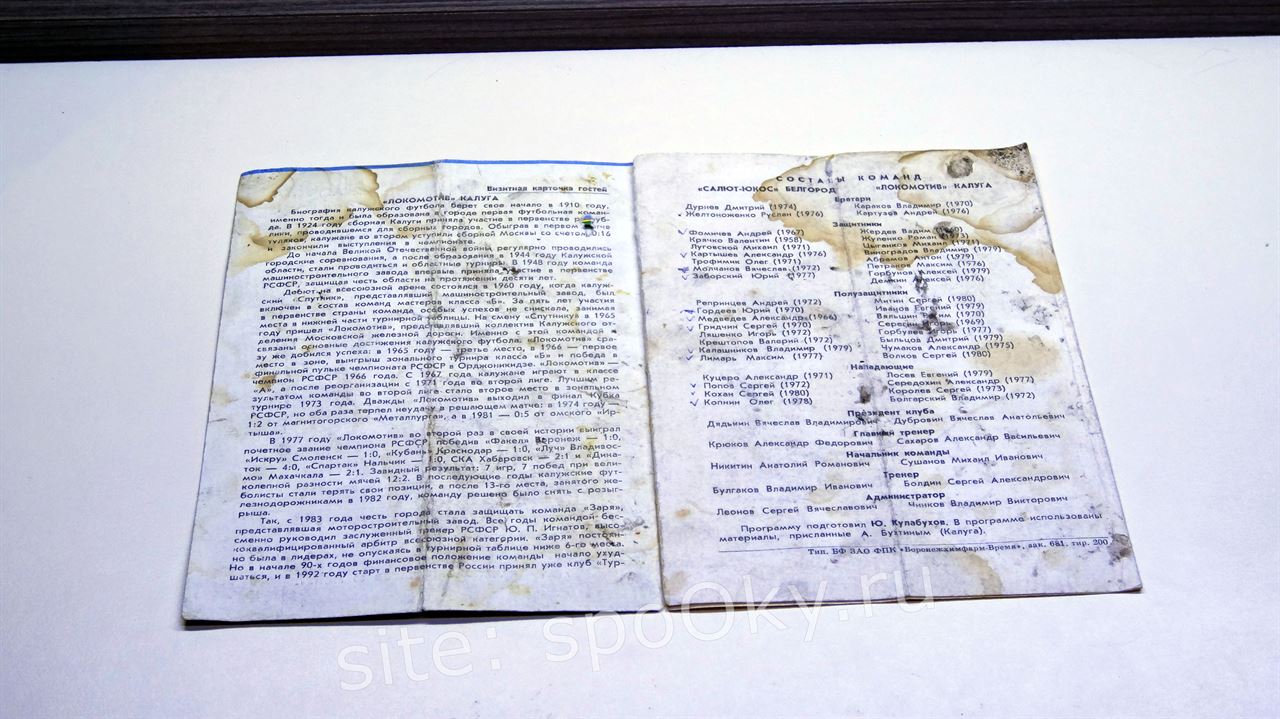 Визитная карточка гостей
«ЛОКОМОТИВ» КАЛУГА
Биография калужского футбола берет свое начало в 1910 году,
именно тогда была образована в городе первая футбольная коман-
да. В 1924 году сборная Калуги приняла участие в первенстве
проводившемся для сборных городов. Обыграв в первом
туляков, калужане во втором уступили сборной Москвы со счетом 0:16
и закончили выступления в чемпионате.
До начала Великой Отечественной войны регулярно проводились
городские соревнования, а после образования в 1944 году Калужской
области, стали проводиться и областные турниры. В 1948 году команда
машиностроительного завода впервые приняла участие в первенстве
РСФСР, защищая честь области на протяжении десяти лет.
Дебют на всесоюзной арене состоялся в 1960 году, когда калуж-
ский «Спутник», представлявший машиностроительный завод, был
включен в состав команд мастеров класса «Б». За пять лет участия
в первенстве страны команда особых успехов не снискала, занимая
места в нижней части турнирной таблицы. На смену «Спутнику» в 1965
году пришел «Локомотив», представлявший коллектив Калужского от-
деления Московской железной дороги. Именно с этой командой
связаны основные достижения калужского футбола. «Локомотив» сра-
зу же добился успеха: в 1965 году — третье место, в 1966 — первое
место в зоне, выигрыш зонального турнира класса «Б» и победа в
финальной пульке чемпионата РСФСР в Орджоникидзе. «Локомотив» —
чемпион РСФСР 1966 года. С 1967 года калужане играют в классе
«А», а после реорганизации с 1971 года во второй лиге. Лучшим ре-
зультатом команды во второй лиге стало второе место в зональном
турнире 1973 года. Дважды «Локомотив» выходил в финал Кубка
РСФСР, но оба раза терпел неудачу в решающем матче: в 1974 году —
1:2 от магнитогорского «Металлурга», а в 1981 — 0:5 от омского «Ир-
тыша».
В 1977 году «Локомотив» во второй раз в своей истории выиграл
почетное звание чемпиона РСФСР, победив «Факел» Воронеж — 1:0,
«Искру» Смоленск — 1:0, «Кубань» Краснодар — 1:0, «Луч» Владивос-
ток — 4:0, «Спартак» Нальчик — 1:0, СКА Хабаровск — 2:1 и «Дина-
мо» Махачкала — 2:1. Завидный результат: 7 игр, 7 побед при вели-
колепной разности мячей 12:2. В последующие годы калужские фут-
болисты стали терять свои позиции, а после 13-го места, занятого же-
лезнодорожниками в 1982 году, команду решено было снять с розыг-
рыша.
Так, с 1983 года честь города стала защищать команда «Заря»,
представлявшая моторостроительный завод. Все годы командой бес-
сменно руководил заслуженный тренер РСФСР Ю. П. Игнатов, высо-
коквалифицированный арбитр всесоюзной категории. «Заря» постоян-
но была в лидерах, не опускаясь в турнирной таблице ниже 6-го места.
Но в начале 90-х годов финансовое положение команды начало ухуд-
шаться, и в 1992 году старт в первенстве России принял уже клуб «Тур-
СОСТАВЫ КОМАНД
«САЛЮТ-ЮКОС» БЕЛГОРОД «ЛОКОМОТИВ» КАЛУГА
Вратари
Дурнев Дмитрий (1974) Караков Владимир (1970)
Желтоноженко Руслан (1976) Картузов Андрей (1976)
Защитники
Фомичев Андрей (1967) Жердев Вадим
Крячко Валентин (1958) Жуленко Роман
Луговской Михаил (1971) Цыганков Михаил
Картышев Александр (1976) Виноградов Владимир (1979)
Трофимик Олег (1971) Абрамов Антон (1979)
Молчанов Вячеслав (1972) Петраков Максим (1976)
Заборский Юрий (1977) Горбунов Алексей (1979)
Демкин Алексей (1976)
Полузащитники
Репринцев Андрей (1972) Митин Сергей (1980)
Гордеев Юрий (1970) Иванов Евгений (1979)
Медведев Александр (1966) Вяльшин (1970)
Гридчин Сергей (1970) (1969)
Ляшенко Игорь (1972) Горбулев Игорь (1977)
Крештопов Валерий (1972) Быльцов Дмитрий (1979)
Калашников Владимир (1979) Чумаков Александр (1975)
Лимарь Максим (1977) Волков Сергей (1980)
Нападающие
Куцеро Александр (1971) Лосев Евгений (1979)
Попов Сергей (1972) Середохин Александр (1977)
Кохан Сергей (1980) Королев Сергей (1973)
Копнин Олег (1978) Болгарский Владимир (1972)
Президент клуба
Дядькин Вячеслав Владимирович Дубровин Вячеслав Анатольевич
Главный тренер
Крюков Александр Федорович Сахаров Александр Васильевич
Начальник команды
Никитин Анатолий Романович Сушанов Михаил Иванович
Тренер
Булгаков Владимир Иванович Болдин Сергей Александрович
Администратор
Леонов Сергей Вячеславович Чинков Владимир Викторович
Программу подготовил Ю. Кулабухов. В программе использованы
материалы, присланные А. Бузтиным (Калуга).
Тип. БФ ЗАО ФПК «Воронежхимфарм-Время», зак. 681, тир. 200
site: spoOky.ru